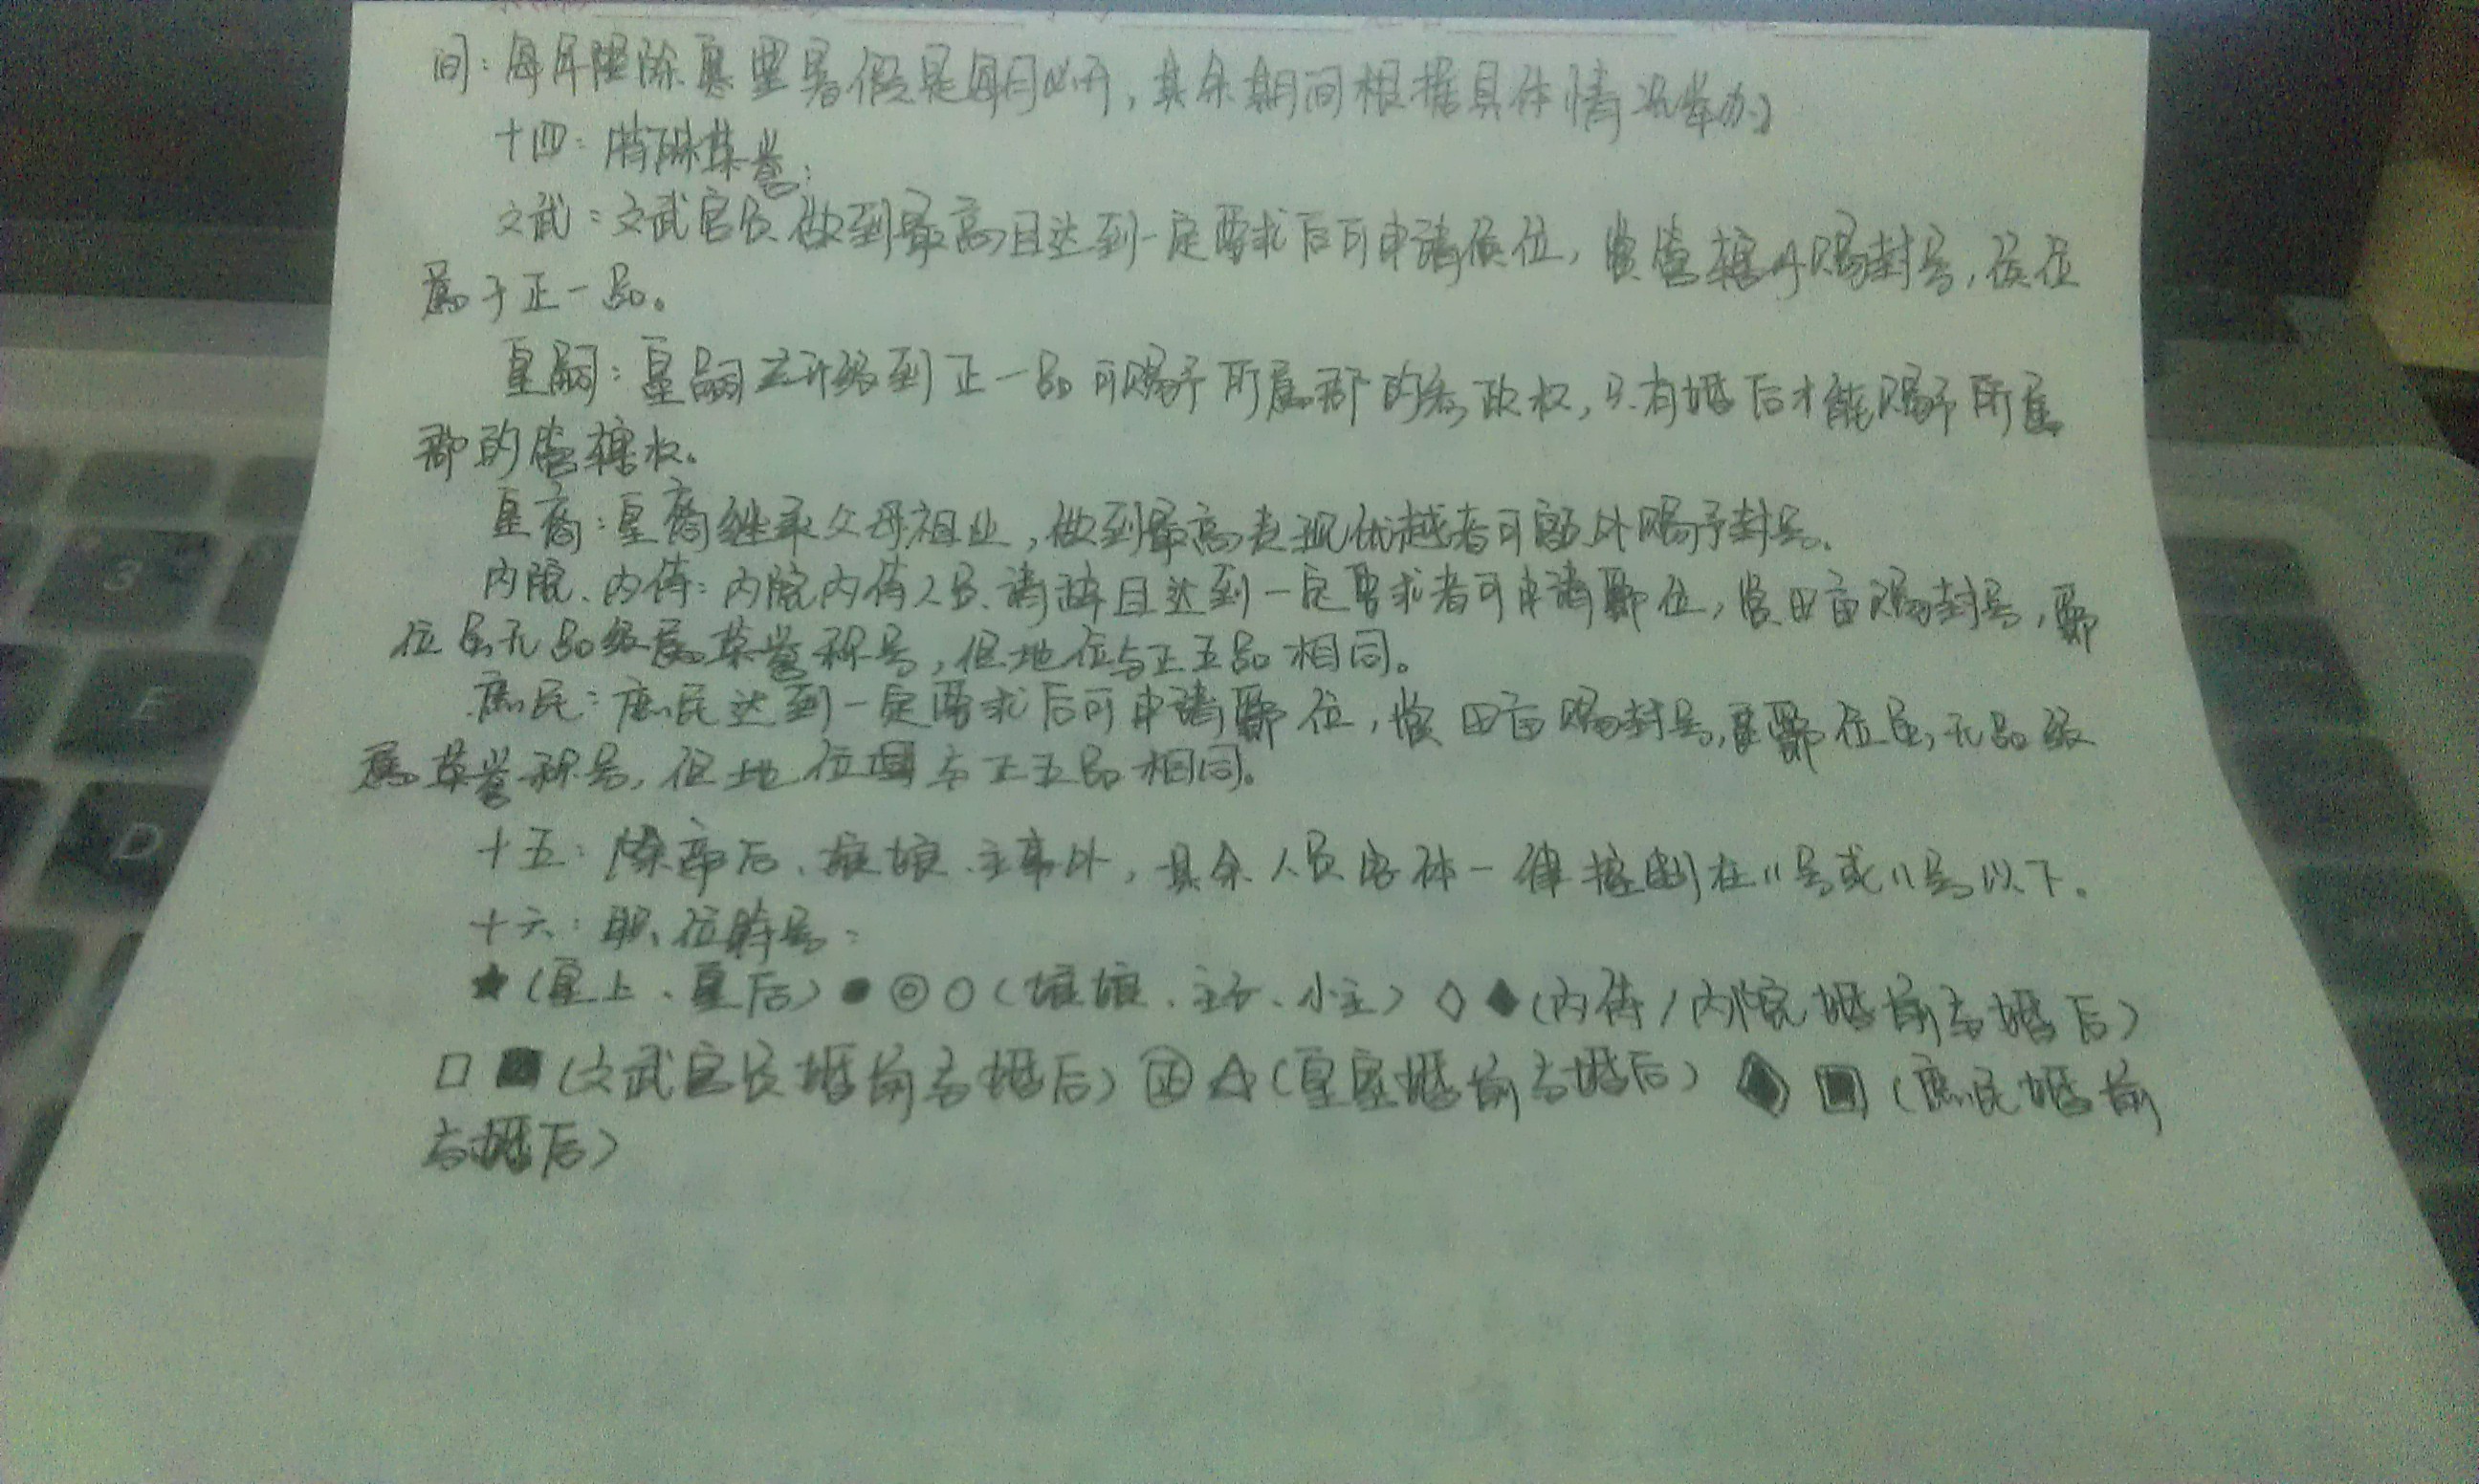 间：每年除寒暑假是每月必开，其余期间根据具体情况举办）
十四：特殊荣誉：
文武：文武官员做到最高且达到一定要求后可申请侯位，赏管辖并赐封号，侯位
属于正一品。
皇嗣：皇嗣升级到正一品可赐予所属部的参政权，只有婚后才能赐予所属
部的管辖权。
皇裔：皇裔继承父母祖业，做到最高表现优越者可额外赐予封号。
内院、内侍：内院内侍人员请辞且达到一定要求者可申请爵位，赏田亩赐封号，爵
位虽无品级属荣誉称号，但地位与正五品相同。
庶民：庶民达到一定要求后可申请爵位，赏田亩赐封号，爵位虽无品级
属荣誉称号，但地位与正五品相同。
十五：除帝后、娘娘、主事外，其余人员字体一律控制在11号或11号以下。
十六：职位符号：
★（皇上、皇后）●◎○（娘娘、主子、小主）◇◆（内侍/内院婚前与婚后）
□■（文武官员婚前与婚后）㊣☆（皇室婚前与婚后）◈▣（庶民婚前
与婚后）